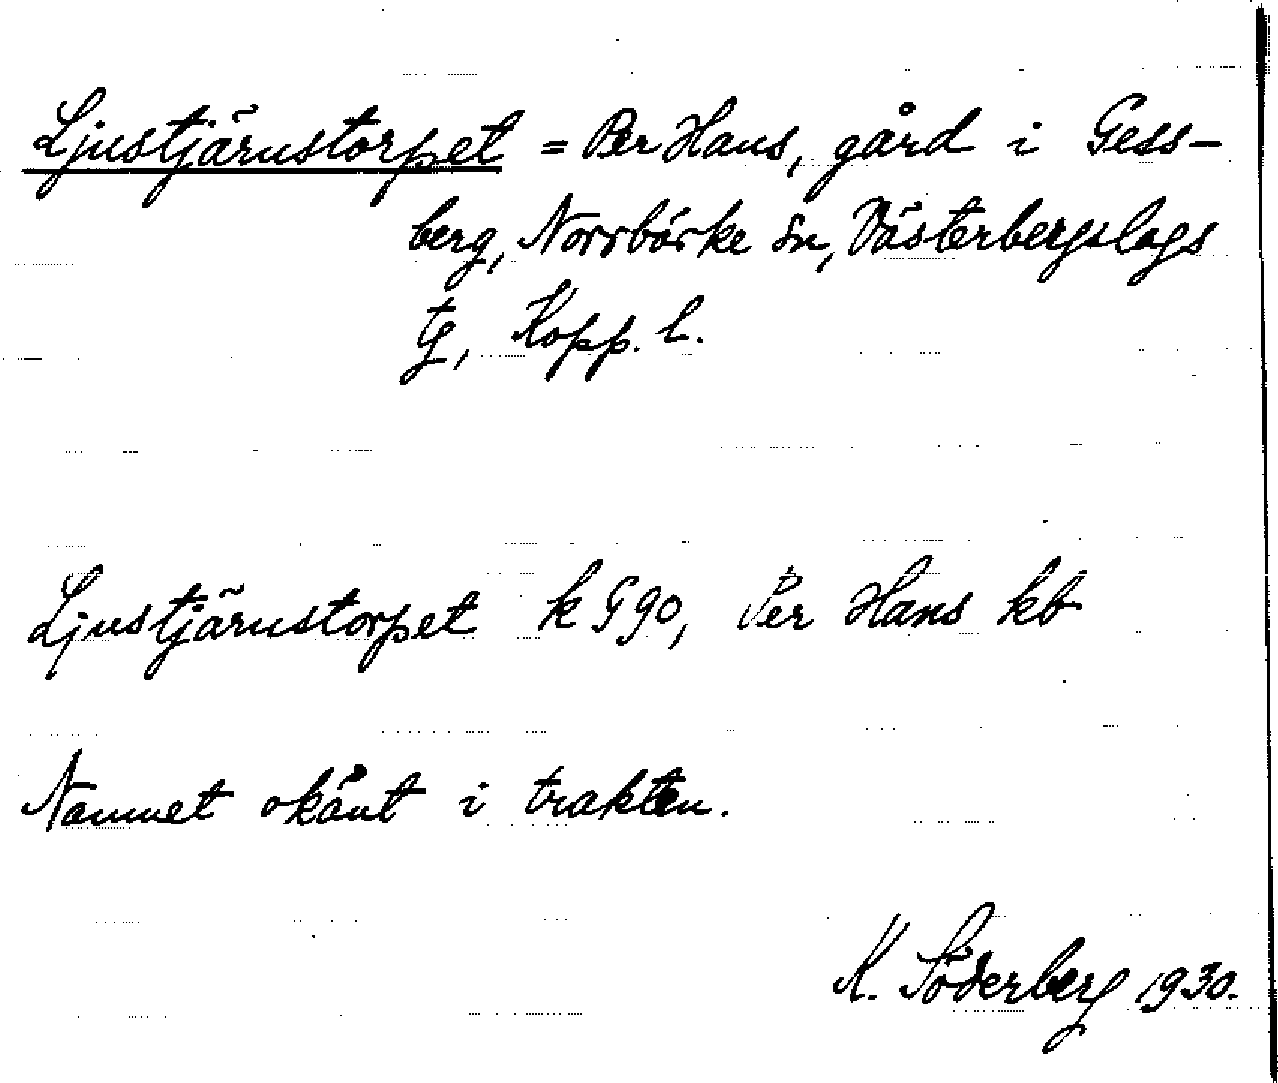 Ljustjärnstorpet = Per Hans, gård i Gess-
berg, Norrbärke sn, Västerbergslags
tg, Kopp. l.
Ljustjärnstorpet k G90, Per Hans kb
Namnet okänt i trakten.
K. Söderberg 1930.